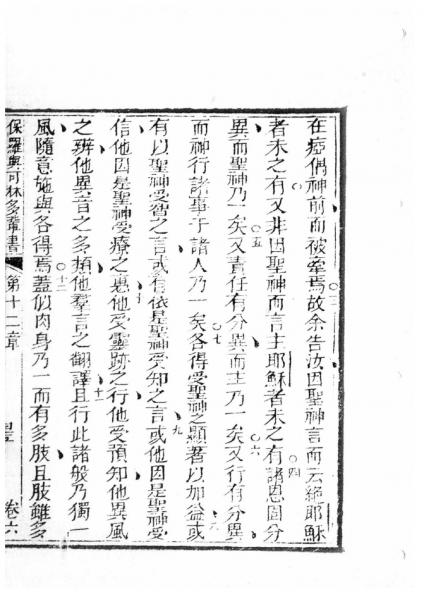 在瘂偶神前而被牽焉故余告汝因聖神言而云絕耶穌
者未之有又非因聖神而言主耶穌者未之有諸恩固分
異而聖神乃一矣又責任有分異而主乃一矣又行有分異
而神行諸事于諸人乃一矣各得受聖神之顯著以加益或
有以聖神受智之言或有依是聖神受知之言或他因是聖神受
信他因是聖神受療之惠他受靈跡之行他受預知他異風
之辨他異音之多類他羣言之翻譯且行此諸般乃獨一
風隨意施與各得焉蓋似肉身乃一而有多肢且肢雖多
保羅與可林多輩書 第十二章 卷六